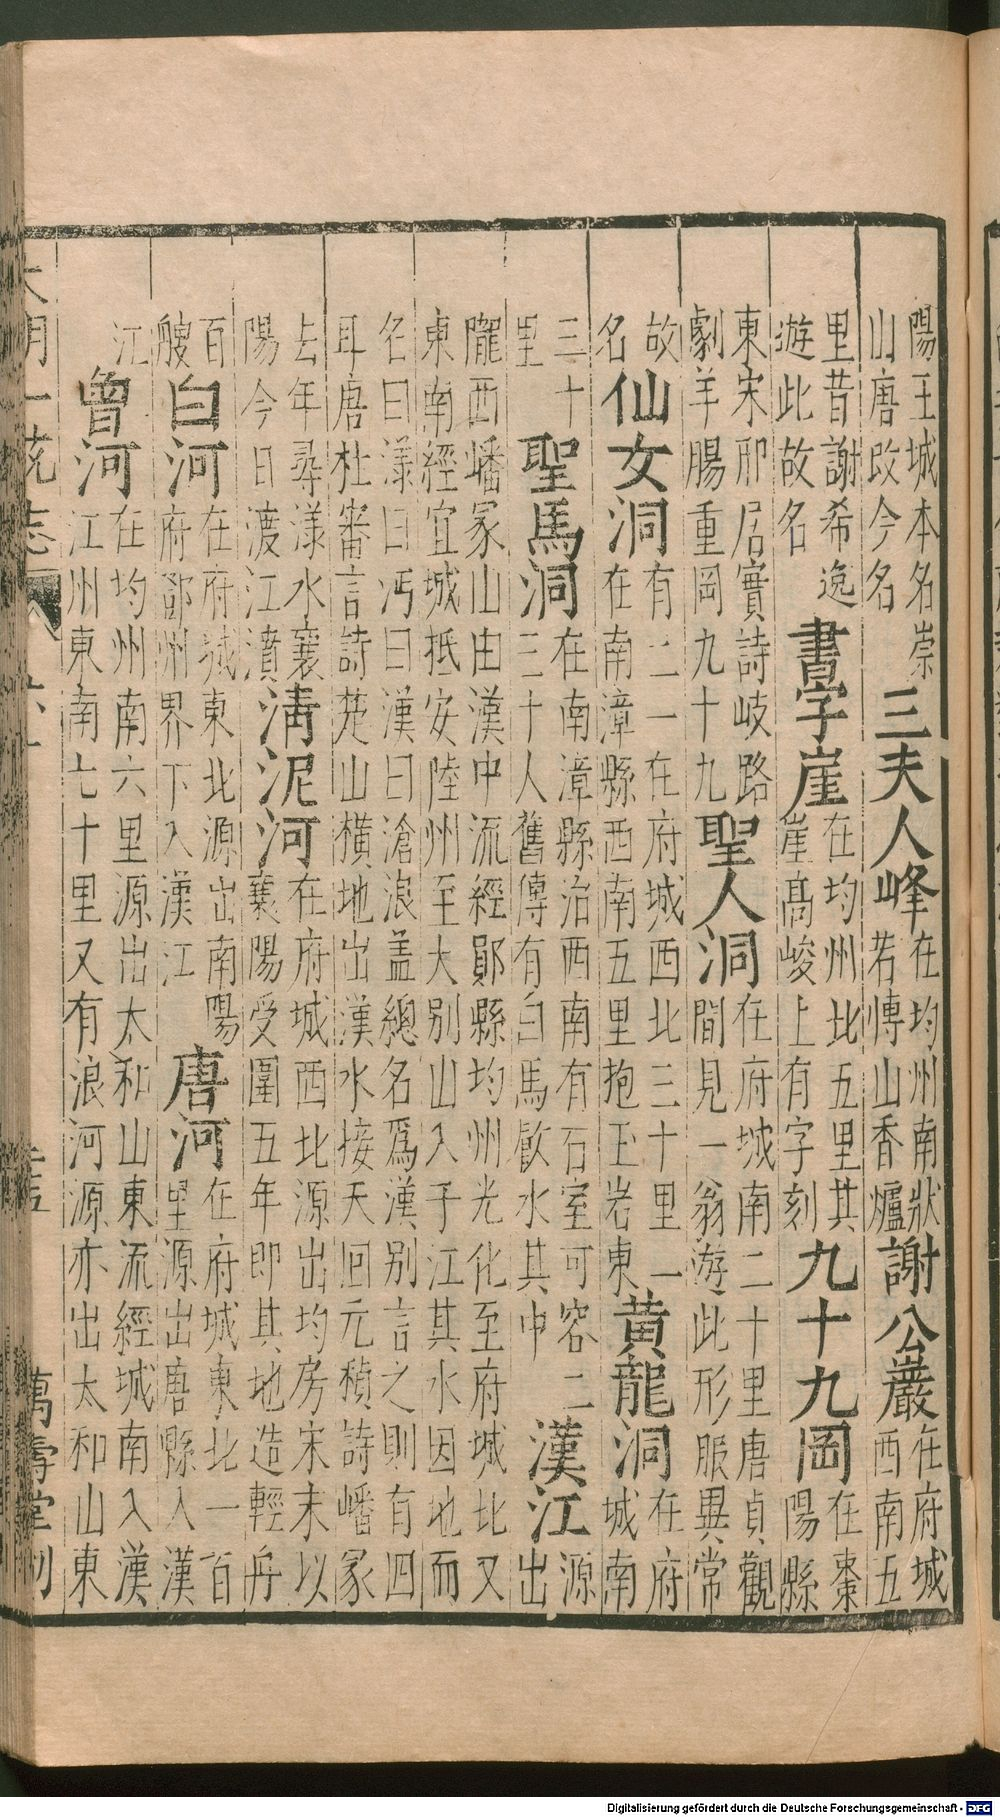 陽王城本名崇
山唐改今名
三夫人峰
在均州南狀
若愽山香爐
謝公巖
在府城
西南五
里昔謝希逸
遊此故名
書字崖
在均州北五里其
崖高峻上有字刻
九十九岡
在棗
陽縣
東宋邴居實詩岐路
劇羊腸重岡九十九
聖人洞
在府城南二十里唐貞觀
間見一翁游此形服異常
故
名
仙女洞
有二一在府城西北三十里一
在南漳縣西南五里抱玉岩東
黃龍洞
在府
城南
三十
里
聖馬洞
在南漳縣治西南有石室可容二
三十人舊傳有白馬飮水其中
漢江
源
出
隴西嶓冢山由漢中流經鄖縣均州光化至府城北又
東南經宜城抵安陸州至大別山入于江其水因地而
名曰漾曰沔曰漢曰滄浪盖總名爲漢別言之則有四
耳唐杜審言詩楚山橫地出漢水接天回元稹詩嶓冢
去年尋漾水襄
陽今日渡江濆
淸泥河
在府城西北源出均房宋末以
襄陽受圍五年即其地造輕舟
百
艘
白河
在府城東北源出南陽
府鄧州界下入漢江
唐河
在府城東北一百
里源出唐縣入漢
江
曾河
在均州南六里源出太和山東流經城南入漢
江州東南七十里又有浪河源亦出太和山東
大明一統志
萬壽堂刋
Digitalisierung gefördert durch die Deutsche Forschungsgemeinschaft - DFG